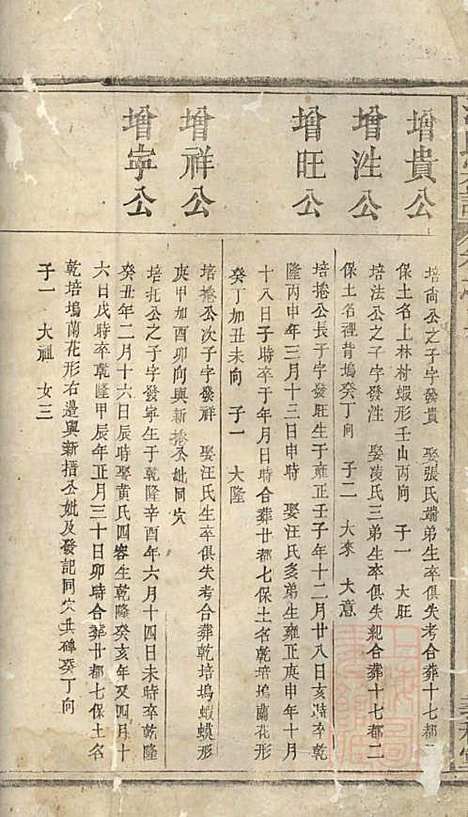 增貴公
培尚公之子字發貴 娶張氏端弟生卒俱失考合葬十七都二
保土名上林村蝦形壬山丙向 子一 大旺
增法公
培法公之子字發性 娶凌氏三弟生卒俱失紀合葬十七都二
保土名裡昔塢癸丁向 子二 大來 大意
增旺公
培捲公長子字發旺生于雍正壬子年十二月廿八日亥時卒乾
隆丙申年三月十三日申時 娶汪氏多弟生雍正庚申年十月
十八日子時卒于年月日時合葬廿都七保土名乾培塢蘭花形
癸丁加丑未向 子一 大隆
增祥公
培捲公次子字發祥 娶汪氏生卒俱失考合葬乾培塢蝦蟆形
庚甲加酉卯向與新捲公妣同穴
增寧公
培托公之子字發寧生于乾隆辛酉年六月十四日未時卒乾隆
癸丑年二月十六日辰時娶黃氏四容生乾隆癸亥年又四月十
六日戌時卒乾隆甲辰年正月三十日卯時合葬廿都七保土名
乾培塢蘭花形右邊與新搢公妣及發記同穴共碑癸丁向
子一 大祖 女三